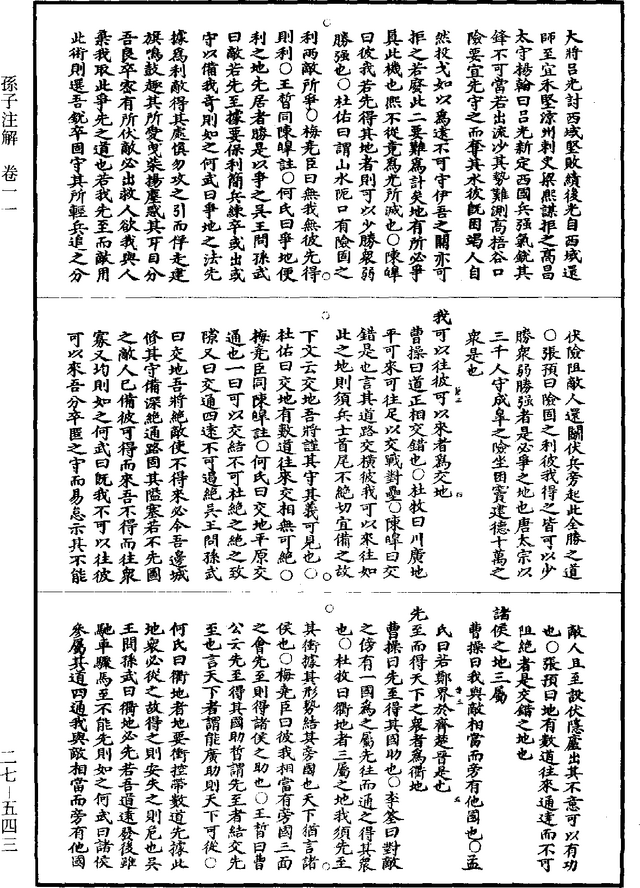 孫子注解 卷一一
二七—五四三
大將呂光討西域堅敗績後光自西域還
師至宜禾堅涼州刺史梁熙謀拒之高昌
太守楊翰曰呂光新定西國兵强氣銳其
鋒不可當若出流沙其勢難測高梧谷口
險要宜先守之而奪其水彼既困渴人自
然投戈如以爲遠不可守伊吾之關亦可
拒之若廢此二要難爲計矣地有所必爭
真此機也熙不從竟爲光所滅也○陳皥
曰彼我若先得其地者則可以少勝衆弱
勝强也○杜佑曰謂山水阨口有險固之
利兩敵所爭○梅堯臣曰無我無彼先得
則利○王晳同陳皥註○何氏曰爭地便
利之地先居者勝是以爭之吳王問孫武
曰敵若先至據要保利簡兵練卒或出或
守以備我奇則如之何武曰爭地之法先
據爲利敵得其處慎勿攻之引而佯走建
旗鳴鼓趣其所愛曳柴揚塵惑其耳目分
吾良卒密有所伏敵必出救人欲我與人
棄我取此爭先之道也若我先至而敵用
此術則選吾銳卒固守其所輕兵追之分
伏險阻敵人還鬭伏兵旁起此全勝之道
○張預曰險固之利彼我得之皆可以少
勝衆弱勝强者是必爭之地也唐太宗以
三千人守成皐之險坐困竇建德十萬之
衆是也
我可以往彼可以來者爲交地
曹操曰道正相交錯也○杜牧曰川廣地
平可來可往足以交戰對壘○陳皥曰交
錯是也言其道路交橫彼我可以來往如
此之地則須兵士首尾不絕切宜備之故
下文云交地吾將謹其守其義可見也○
杜佑曰交地有數道往來交相無可絕○
梅堯臣同陳皥註○何氏曰交地平原交
通也一曰可以交結不可杜絕之絕之致
隙又曰交通四遠不可遏絕吳王問孫武
曰交地吾將絕敵使不得來必令吾邊城
修其守備深絕通路固其隘塞若不先圖
之敵人已備彼可得而來吾不得而往衆
寡又均則如之何武曰既我不可以往彼
可以來吾分卒匿之守而易怠示其不能
敵人且至設伏隱廬出其不意可以有功
也○張預曰地有數道往來通達而不可
阻絕者是交錯之地也
諸侯之地三屬
曹操曰我與敵相當而旁有他國也○孟
氏曰若鄭界於齊楚晉是也
先至而得天下之衆者爲衢地
曹操曰先至得其國助也○李筌曰對敵
之傍有一國爲之屬先往而通之得其衆
也○杜牧曰衢地者三屬之地我須先至
其衝據其形勢結其旁國也天下猶言諸
侯也○梅堯臣曰彼我相當有旁國三面
之會先至則得諸侯之助也○王晳曰曹
公云先至得其國助晳謂先至者結交先
至也言天下者謂能廣助則天下可從○
何氏曰衢地者地要衝控帶數道先據此
地衆必從之故得之則安失之則危也吳
王問孫武曰衢地必先若吾道遠發後雖
馳車驟馬至不能先則如之何武曰諸侯
參屬其道四通我與敵相當而旁有他國